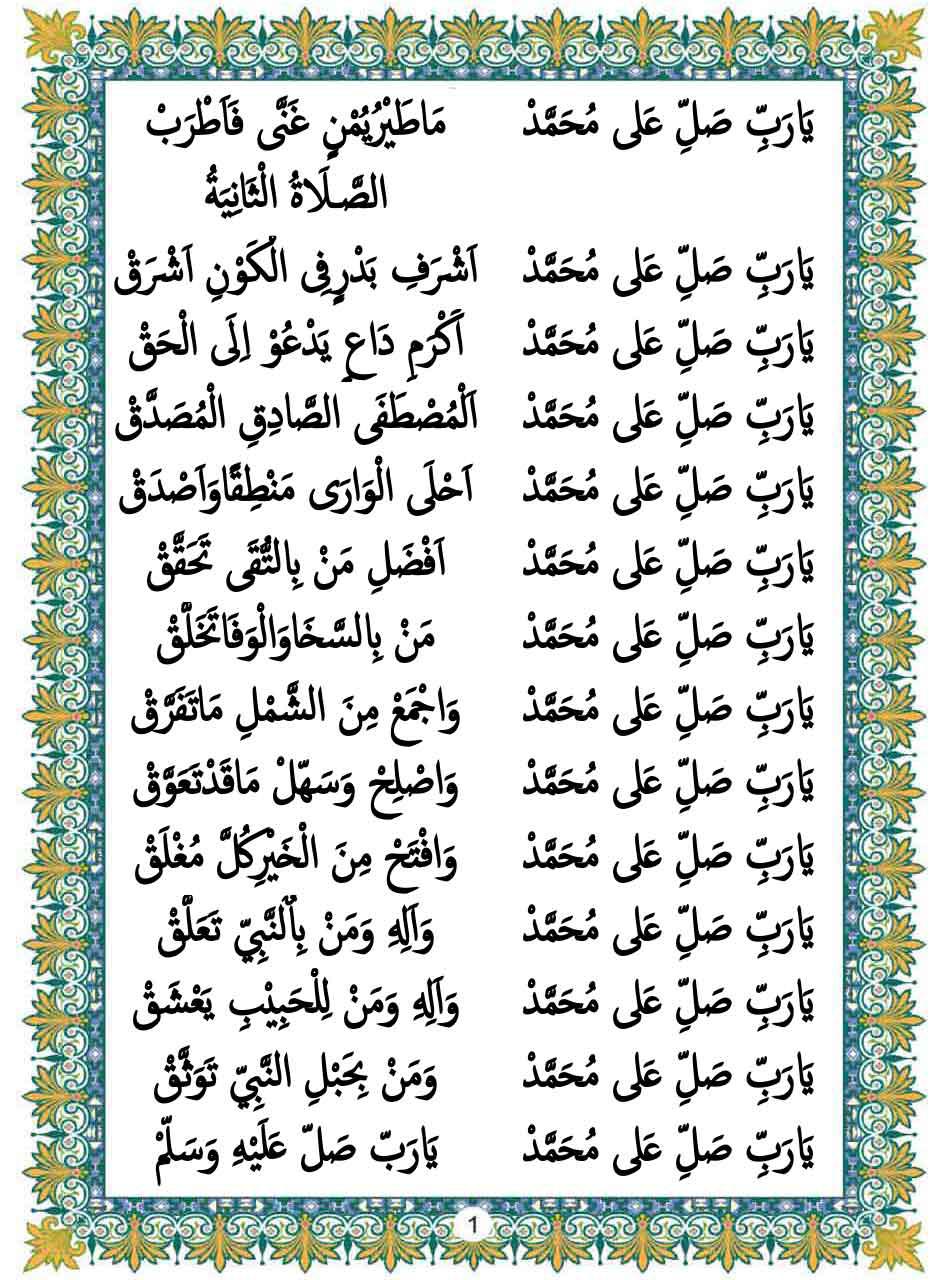 يَارَبِّ صَلِّ عَلى مُحَمَّدْ مَاطَيْرُيُمْنٍ غَنَّى فَاَطْرَبْ
الصَّلَاةُ الْثَانِيَةُ
يَارَبِّ صَلِّ عَلى مُحَمَّدْ اَشْرَفِ بَدْرٍفِى الْكَوْنِ اَشْرَقْ
يَارَبِّ صَلِّ عَلى مُحَمَّدْ أَكْرَمِ دَاعٍ يَدْعُوْ اِلَى الْحَقْ
يَارَبِّ صَلِّ عَلى مُحَمَّدْ اَلْمُصْطَفَى الصَّادِقِ الْمُصَدَّقْ
يَارَبِّ صَلِّ عَلى مُحَمَّدْ اَحْلَى الْوَارَى مَنْطِقًاوَاَصْدَقْ
يَارَبِّ صَلِّ عَلى مُحَمَّدْ اَفْضَلِ مَنْ بِالتُّقَى تَحَقَّقْ
يَارَبِّ صَلِّ عَلى مُحَمَّدْ مَنْ بِالسَّخَاوَالْوَفَاتَخَلَّقْ
يَارَبِّ صَلِّ عَلى مُحَمَّدْ وَاجْمَعْ مِنَ الشَّمْلِ مَاتَفَرَّقْ
يَارَبِّ صَلِّ عَلى مُحَمَّدْ وَاصْلِحْ وَسَهّلْ مَاقَدْتَعَوَّقْ
يَارَبِّ صَلِّ عَلى مُحَمَّدْ وَافْتَحْ مِنَ الْخَيْرِكُلَّ مُغْلَقْ
يَارَبِّ صَلِّ عَلى مُحَمَّدْ وَآلِهِ وَمَنْ بِاُلنَّبِيّ تَعَلَّقْ
يَارَبِّ صَلِّ عَلى مُحَمَّدْ وَآلِهِ وَمَنْ لِلْحَبِيْبِ يَعْشَقْ
يَارَبِّ صَلِّ عَلى مُحَمَّدْ وَمَنْ بِحَبْلِ النَّبِيّ تَوَثَّقْ
يَارَبِّ صَلِّ عَلى مُحَمَّدْ يَارَبّ صَلّ عَلَيْهِ وَسَلّمْ
1